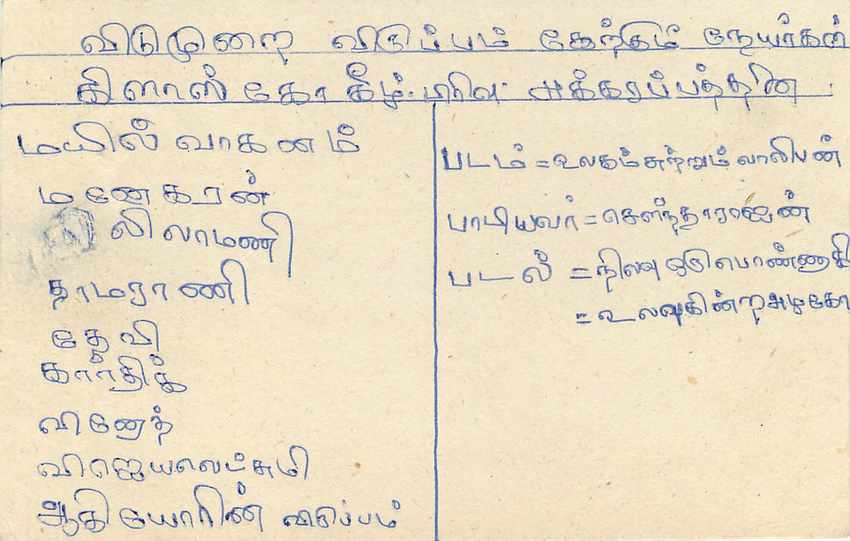 விடுமுறை விருப்பம் கேற்கும் நேயர்கள்
கிளாஸ்கோ கீழ் பிரிவு அக்கரப்பத்தன
மயில்வாகனம்
மனேகரன்
லிலாமணி
தாமராணி
தேவி
கார்த்திக்
வினேத்
விஜெயலெட்சுமி
ஆகியோரின் விருப்பம்
படம் = உலகம் சுற்றும் வாலிபன்
பாடியவர் = சௌந்தாராஜன்
படல் = நிலவு ஒரு பெண்ணாகி
= உலவுகின்ற அழகோ